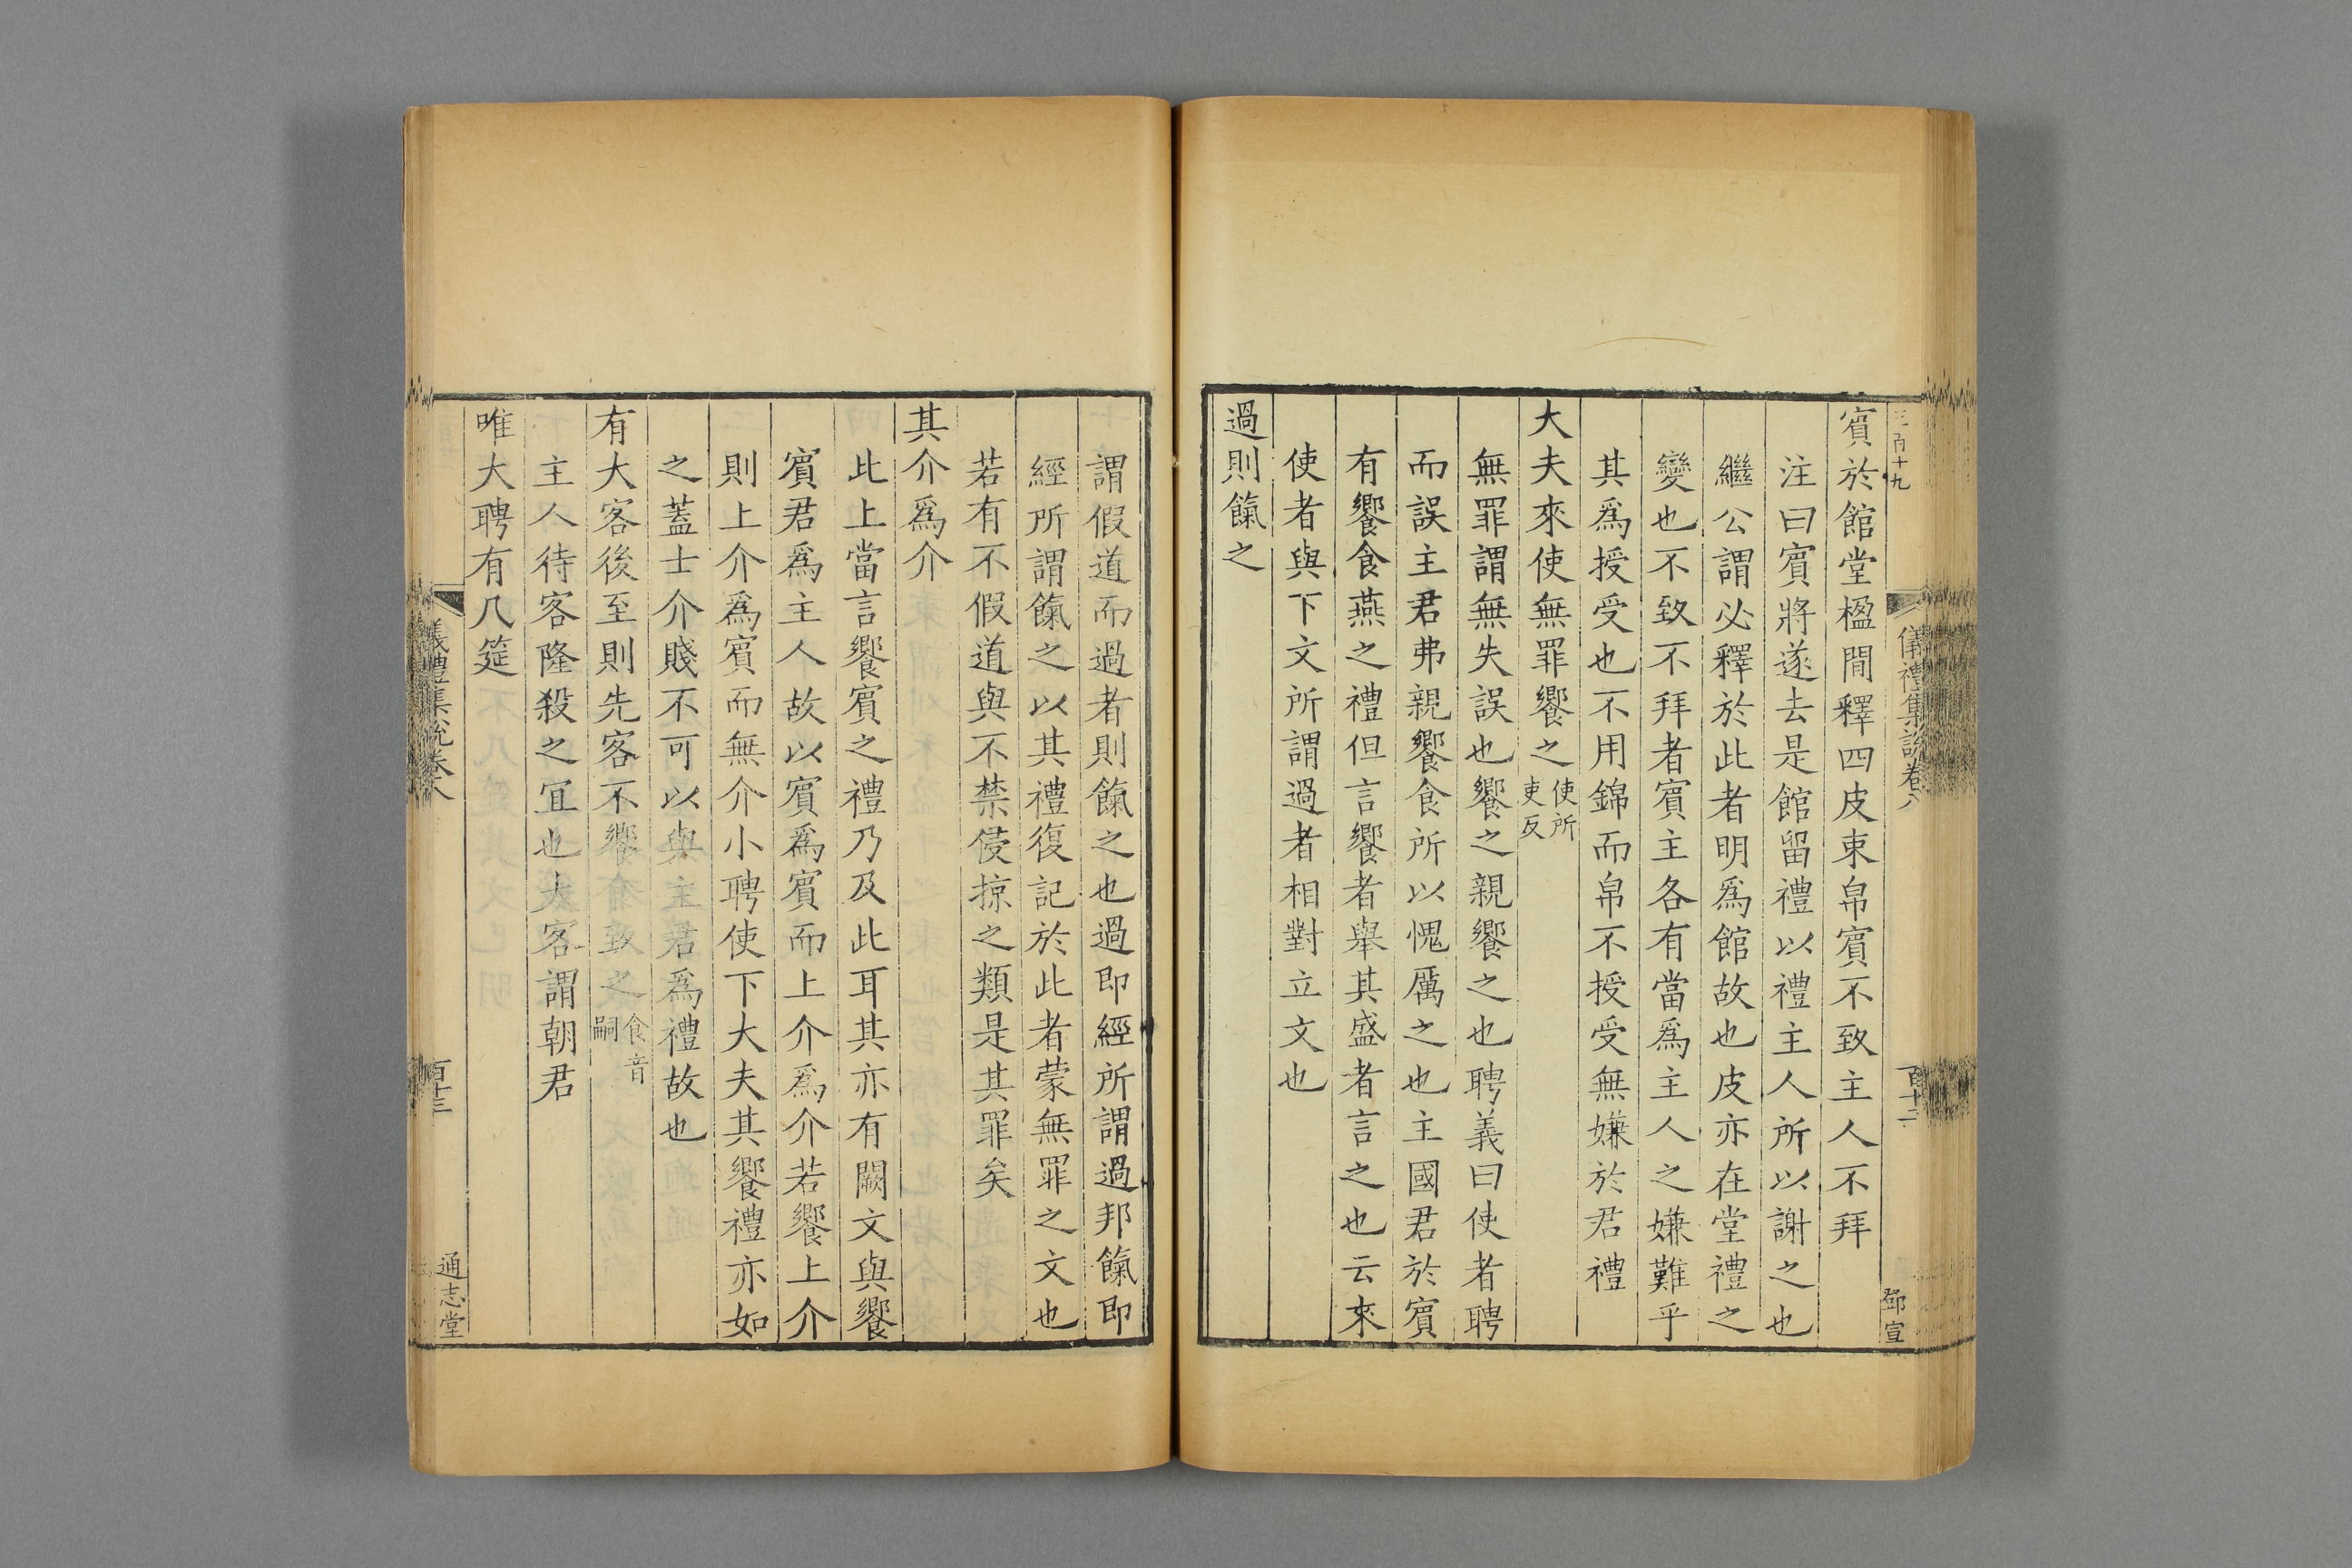 三百十九
儀禮集説卷八
百十二
鄧宣
賓於館堂楹間釋四皮束帛賓不致主人不拜
注曰賓將遂去是館留禮以禮主人所以謝之也
繼公謂必釋於此者明爲館故也皮亦在堂禮之
變也不致不拜者賓主各有當爲主人之嫌難乎
其爲授受也不用錦而帛不授受無嫌於君禮
大夫來使無罪饗之使所吏反
無罪謂無失誤也饗之親饗之也聘義曰使者聘
而誤主君弗親饗食所以愧厲之也主國君於賓
有饗食燕之禮但言饗者舉其盛者言之也云來
使者與下文所謂過者相對立文也
過則餼之
謂假道而過者則餼之也過即經所謂過邦餼即
經所謂餼之以其禮復記於此者蒙無罪之文也
若有不假道與不禁侵掠之類是其罪矣
其介爲介
此上當言饗賓之禮乃及此耳其亦有闕文與饗
賓君爲主人故以賓爲賓而上介爲介若饗上介
則上介爲賓而無介小聘使下大夫其饗禮亦如
之蓋士介賤不可以與主君爲禮故也
有大客後至則先客不饗食致之食音嗣
主人待客隆殺之宜也大客謂朝君
唯大聘有几筵
儀禮集説卷八
百十三
通志堂